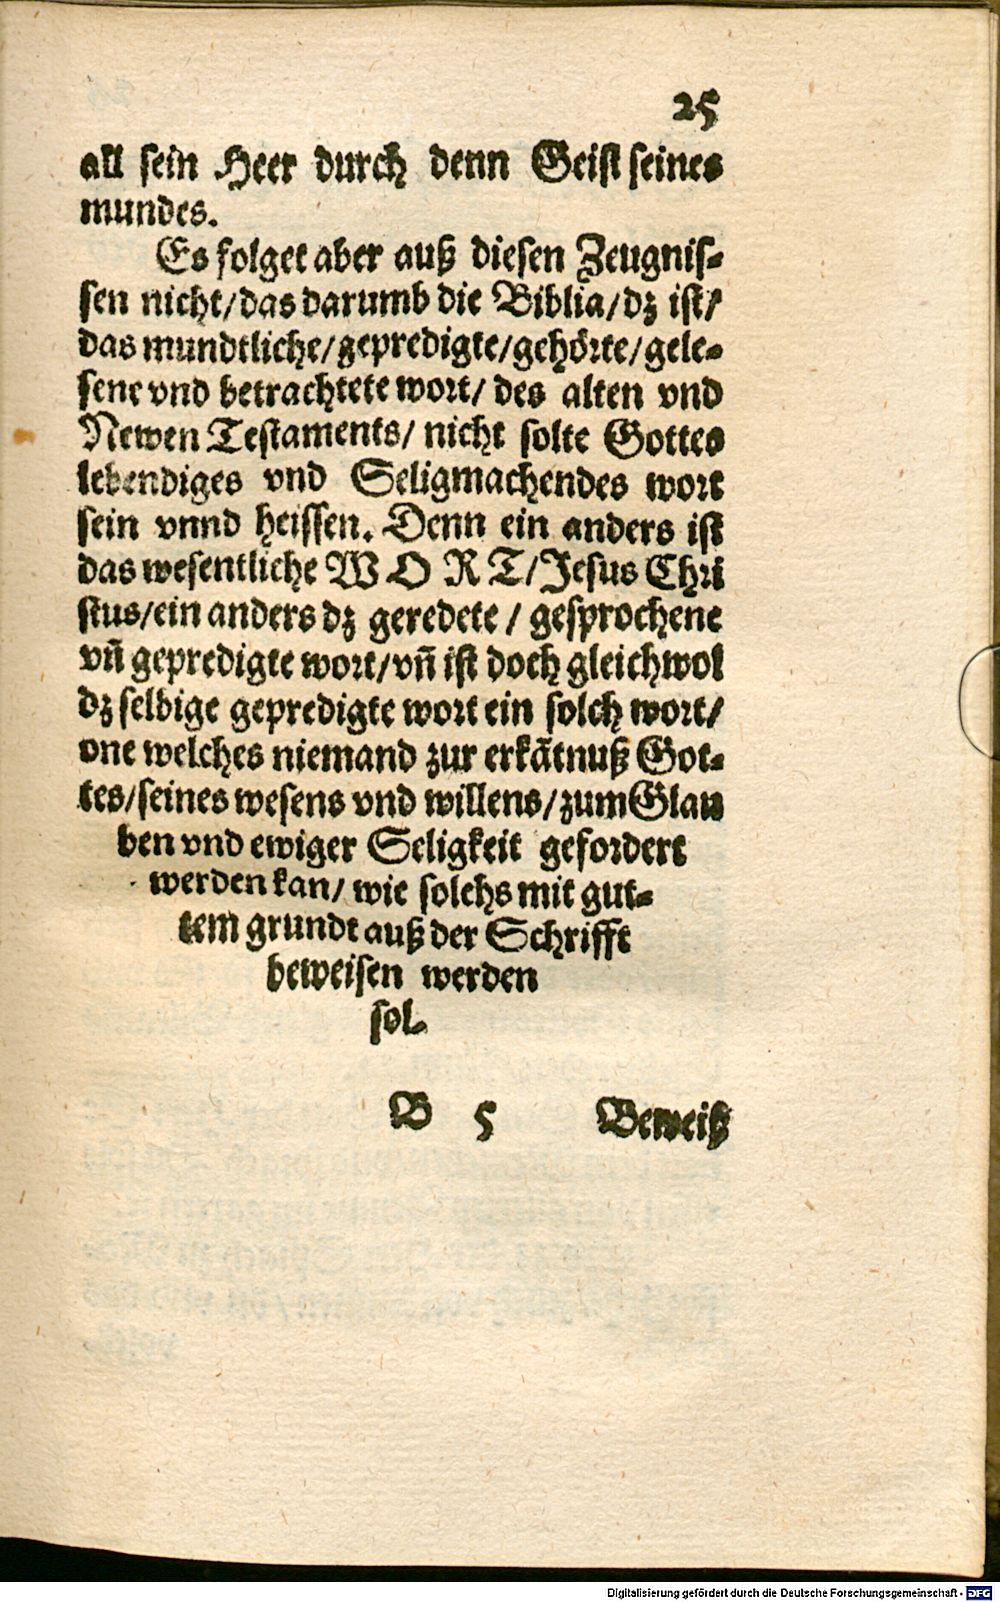 25
all sein Heer durch denn Geist seines
mundes.
Es folget aber auß diesen Zeugnis-
sen nicht/das darumb die Biblia/dz ist/
das mundtliche/gepredigte/gehörte/gele-
sene vnd betrachtete wort/ des alten vnd
Newen Testaments/ nicht solte Gottes
lebendiges vnd Seligmachendes wort
sein vnnd heissen. Denn ein anders ist
das wesentliche W O R T/Jesus Chri
stus/ein anders dz geredete / gesprochene
vñ gepredigte wort/vñ ist doch gleichwol
dz selbige gepredigte wort ein solch wort/
one welches niemand zur erkãtnuß Got-
tes/seines wesens vnd willens/zum Glau
ben vnd ewiger Seligkeit gefordert
werden kan/ wie solchs mit gut-
tem grundt auß der Schrifft
beweisen werden
sol.
B 5 Beweiß
Digitalisierung gefördert durch die Deutsche Forschungsgemeinschaft - DFG